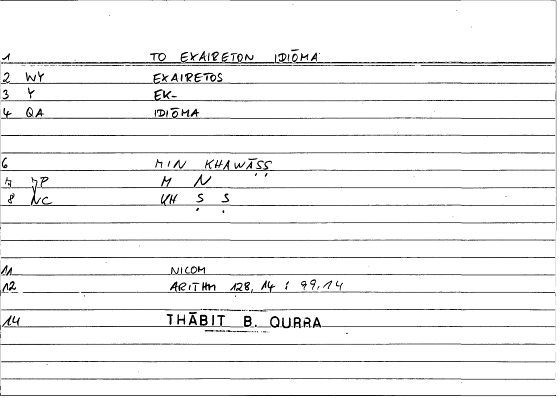 1 TO EXAIRETON IDIŌMA
2 WY EXAIRETOS
3 Y EK-
4 QA IDIŌMA
6 MIN KHAWĀṢṢ
7 JP M N
8 NC KH Ṣ Ṣ
11 NICOM
12 ARITHM 128, 14 : 99, 14
14 THĀBIT B. QURRA